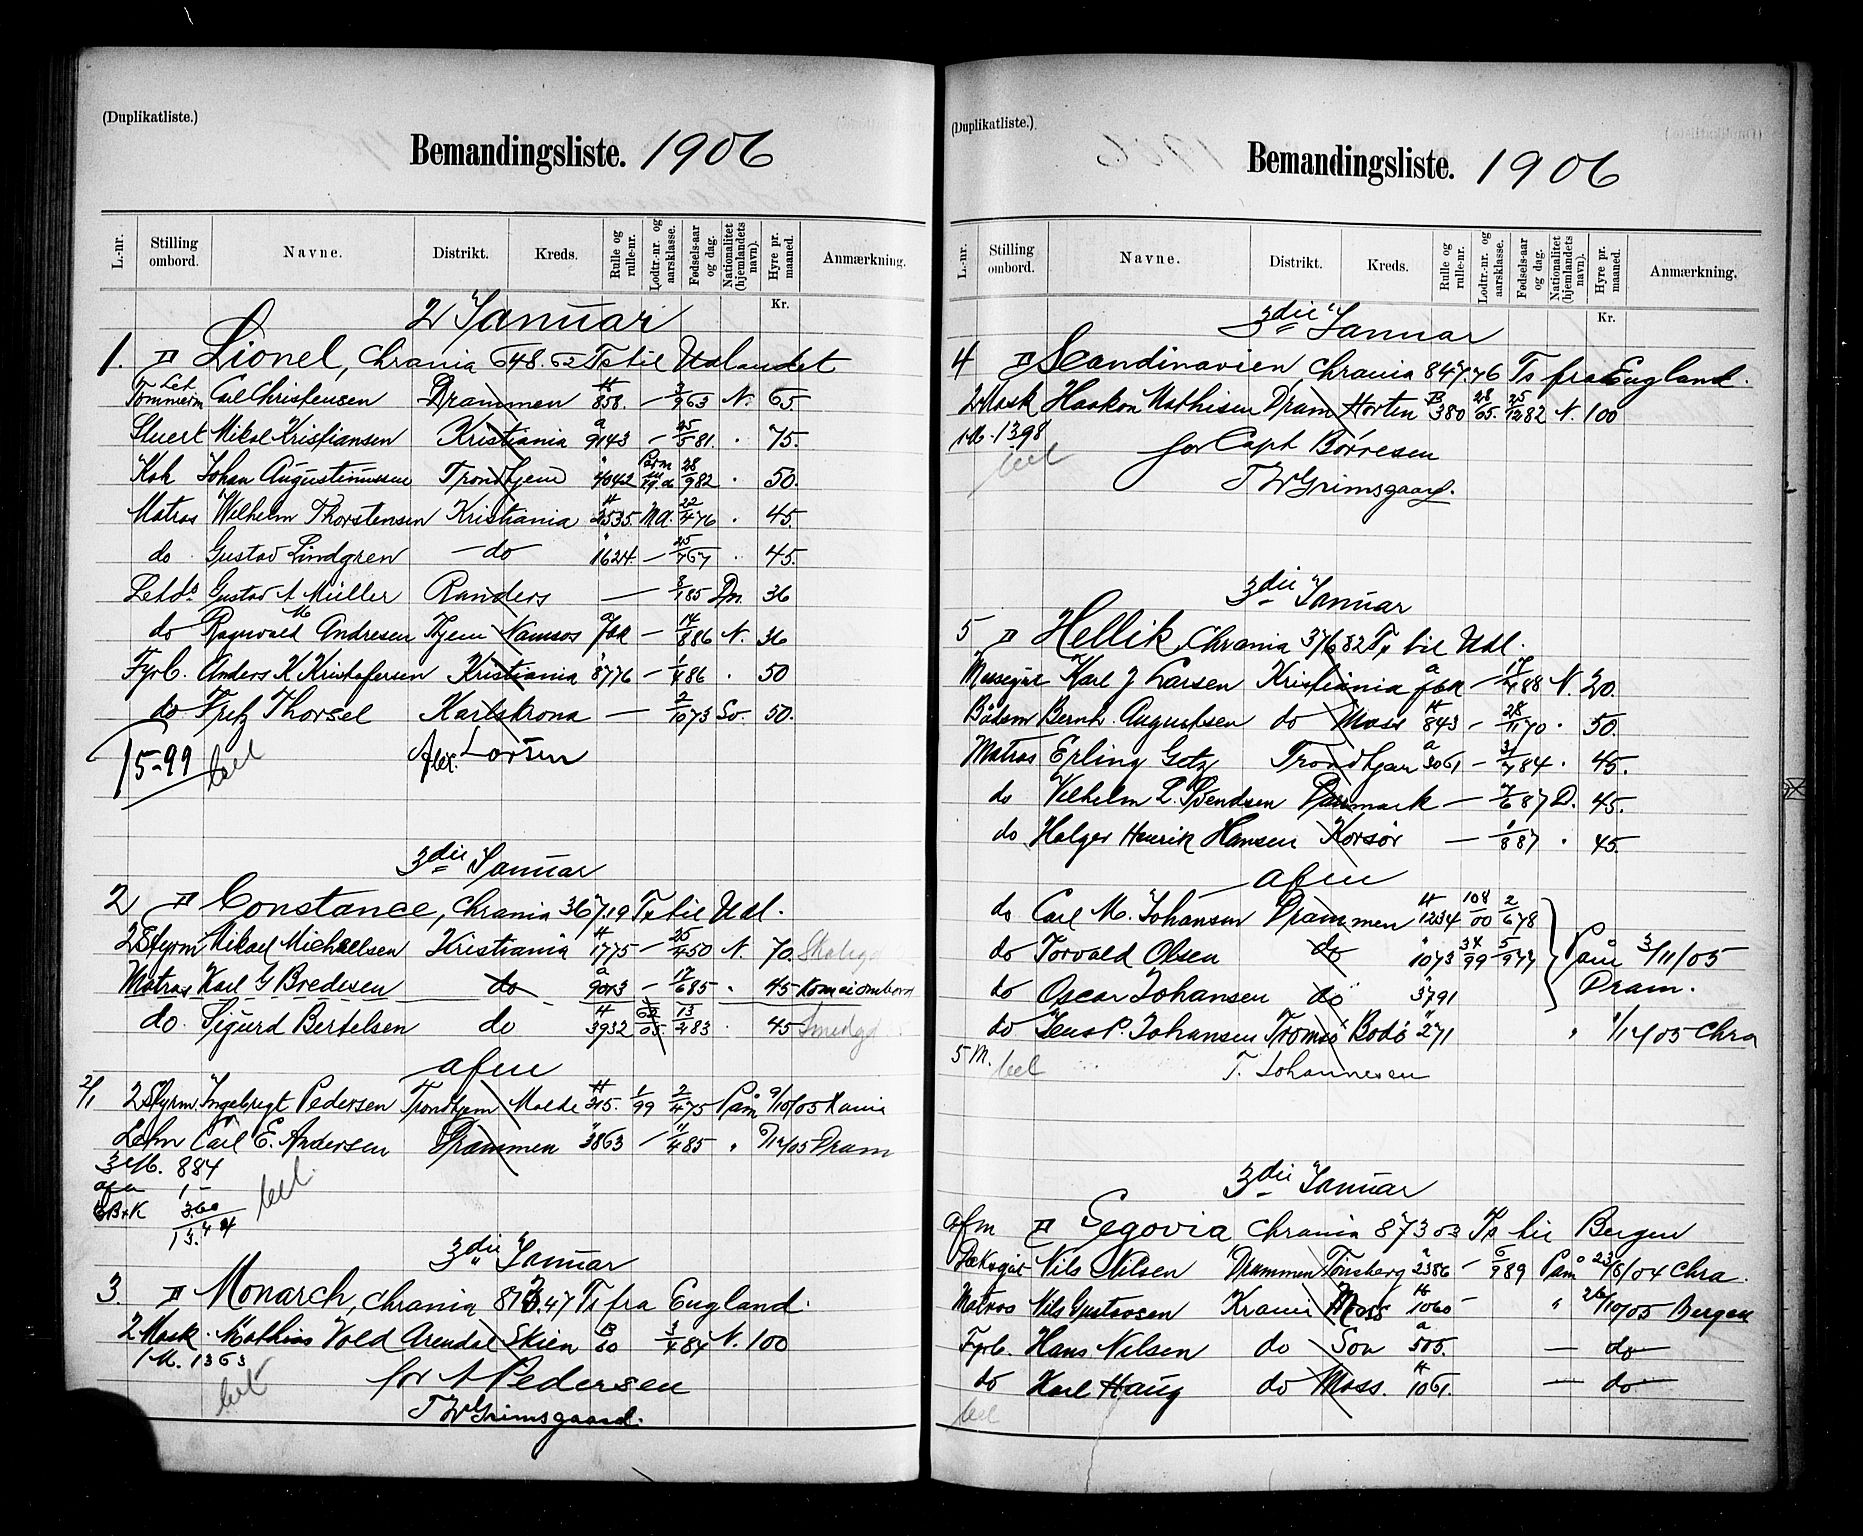 (Duplikatliste.)
Bemandingsliste. 1906
L.-nr. Stilling ombord. Navne. Distrikt. Kreds. Rulle og rulle-nr. Lodtr.-nr. og aarsklasse. Fødsels-aar og dag. Nationalitet (hjemlandets navn). Hyre pr. maaned. Anmærkning.
Kr.
2 Januar
1. D Lionel, Chrania 648.62 Ts til Udlandet
Let Tømmerm Carl Christensen Drammen H 858. — 2/9 63 N. 65.
Stuert Mikal Kristiansen Kristiania a 9143 — 25/5 81. 75.
Kok Johan Augustinussen Trondhjem " 4042 28/9 82 . 50.
Matros Wilhelm Thorstensen Kristiania H 2535. Md. 22/4 76 . 45.
do Gustav Lindgren — do " 1624. — 25/7 67 . 45.
Letdo Gustav A Müller Randers — 3/1 85 Dn. 36
do Ragnvald M Andresen Thjem Namsos fbk — 17/8 86 N. 36
Fyrb. Anders K Kristofersen Kristiania 8776 — 1/4 86 . 50
do Fritz Thorsel Karlskrona — 2/10 73 Sv. 50.
15-99 bet Alex. Larsen
3die Januar
2 D Constance, Chrania 367.19 Ts til Udl.
2Styrm Mikael Michaelsen Kristiania H 1775 — 25/4 50 N. 70.
Matros Karl G Bredesen do a 9013 — 17/6 85 " 45 Kom ei ombord
do. Sigurd Bertelsen do H 3932 62/05 13/2 83 . 45
afm
2/1 2Styrm. Ingebrigt Pedersen Trondhjem Molde H 215. 1/99 2/4 75 Påm 9/10/05
Letm Carl E. Andersen Drammen " 3863 — 11/4 85 " Dram
3 M. 884
afm 1 –
3B+K 3.60
13.44
bet
3die Januar
3. D Monarch, Chrania 813.47 Ts fra England.
2 Mask. Mathias Vold Arendal Skien B 80 3/4 84 N. 100
1 M. 1363
for A Pedersen
bet
T W Grimsgaard.
(Duplikatliste.)
Bemandingsliste. 1906
L.-nr. Stilling ombord. Navne. Distrikt. Kreds. Rulle og rulle-nr. Lodtr.-nr. og aarsklasse. Fødsels-aar og dag. Nationalitet (hjemlandets navn). Hyre pr. maaned. Anmærkning.
Kr.
3die Januar
4 D Scandinavien Chrania 847.76 Ts fra England.
2Mask Haakon Mathisen Dram Horten B 380 28/65. 25/12 82 N. 100
1 M. 1398
bet for Capt Børresen
T W Grimsgaard.
3die Januar
5 D Hellik, Chrania 376 82 Ts til Udl.
Messegut Karl J Larsen Kristiania a fbk — 17/4 88 N. 20.
Bådsm Bernh. Augustsen do Moss H 843 — 28/11 70 . 50.
Matros Erling Getz Trondhjem a 3061 — 3/7 84 . 45.
do Vilhelm L. Svendsen Danmark — 7/6 87 D. 45.
do Holger Henrik Hansen Korsør — 1/8 87 . 45.
afm
do Carl M. Johansen Drammen H 1234 108/00 2/6 78
do Torvald Olsen do " 1073 34/99 5/9 77 Påm 3/11/05
do Oscar Johansen do 3791 Dram.
do Jens P. Johansen Tromsø Bodø 271 " Chra
5 M. bet T. Johannesen
3die Januar
afm D Segovia Chrania 873 03 Ts til Bergen
Dæksgut Nils Nilsen Drammen Tønsberg " 2386 — 6/9 89 Påm 23/8/04 Chra.
Matros Nils Gustavsen Krania Moss H 1060 — " 26/10/05 Bergen
Fyrb. Hans Nilsen do Son a 505. — do
do Karl Haug do Moss. H 1061. — do
bet